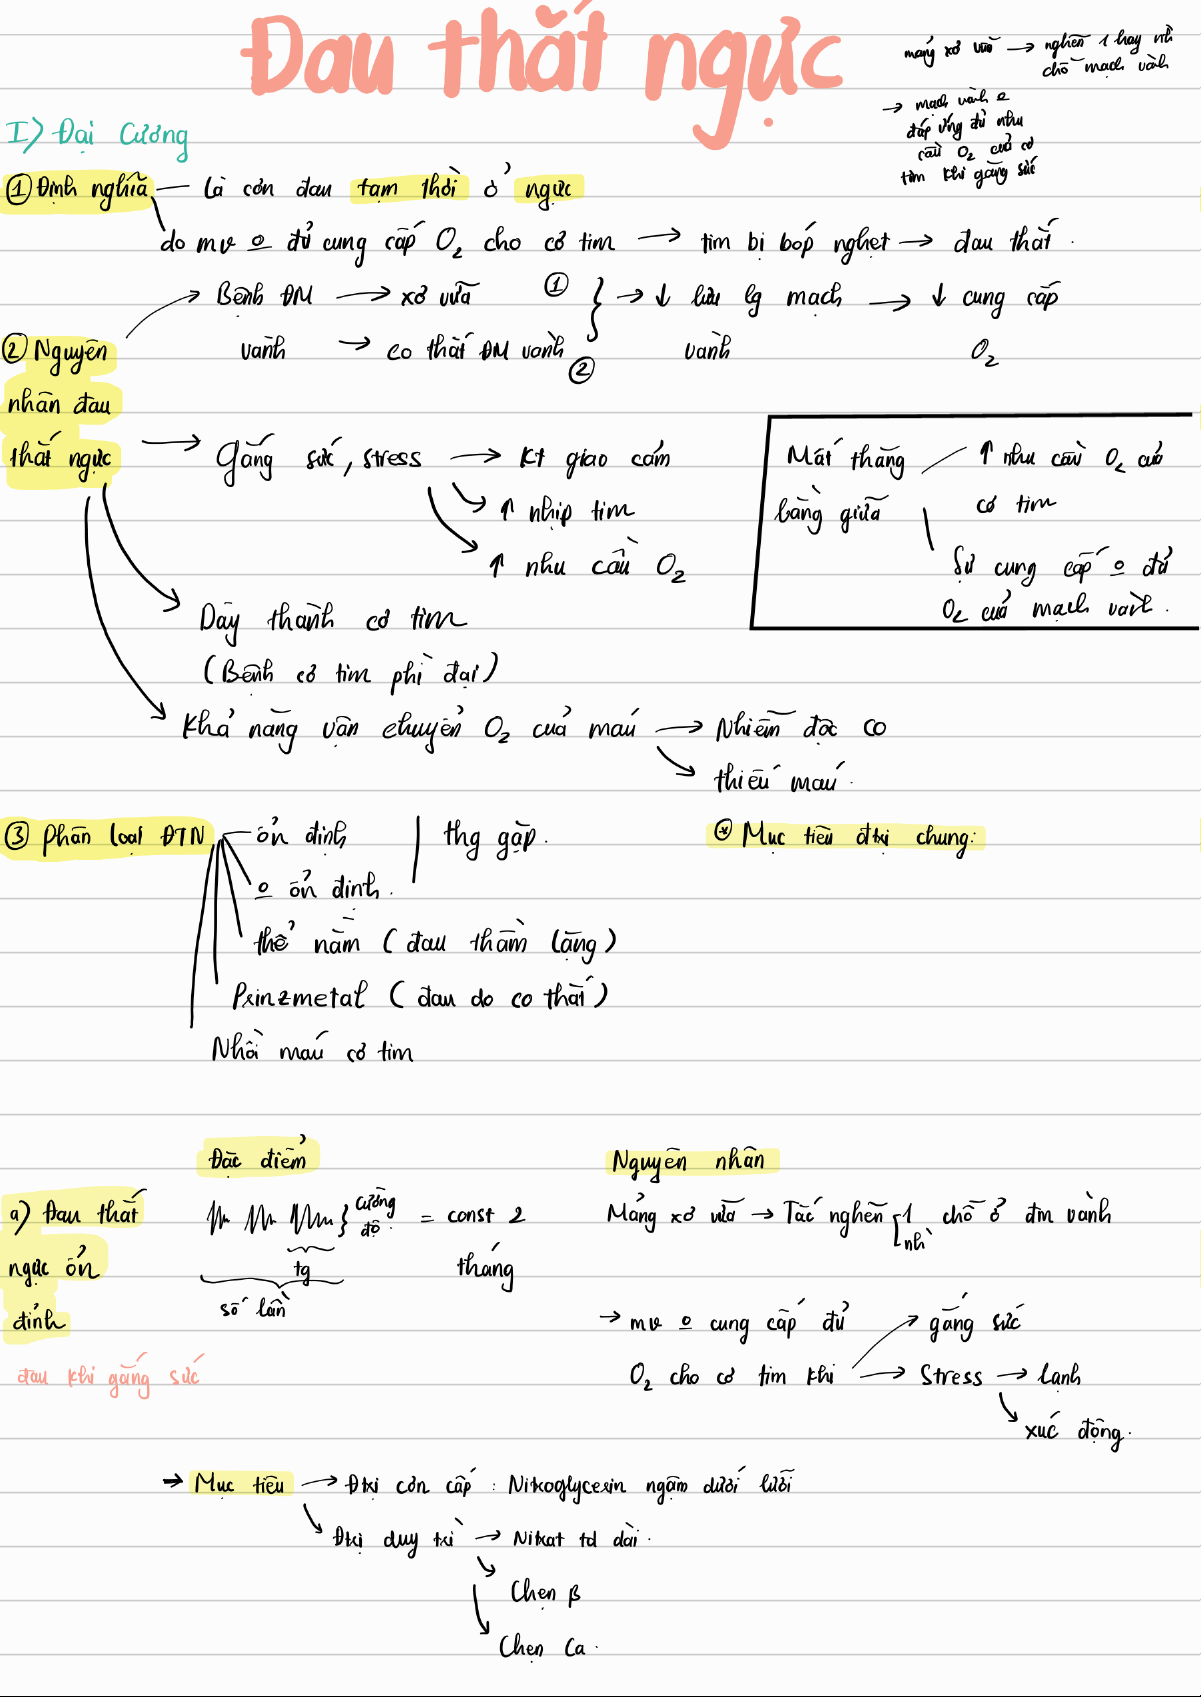 Đau thắt ngực
mảng xơ vữa → nghẽn 1 hay nh`
chỗ mạch vành
→ mạch vành o
đáp ứng đủ nhu
cầu O₂ của cơ
tim khi gắng sức
I) Đại Cương
① Định nghĩa — là cơn đau tạm thời ở ngực
do mv o đủ cung cấp O₂ cho cơ tim → tim bị bóp nghẹt → đau thắt.
Bệnh ĐM → xơ vữa ① } → ↓ lưu lg mạch → ↓ cung cấp
② Nguyên vành → co thắt ĐM vành ② vành O₂
nhân đau
thắt ngực → Gắng sức, stress → Kt giao cảm
↑ nhịp tim
↑ nhu cầu O₂
Mất thăng ↑ nhu cầu O₂ của
bằng giữa cơ tim
Sự cung cấp o đủ
O₂ của mạch vành.
Dày thành cơ tim
(Bệnh cơ tim phì đại)
Khả năng vận chuyển O₂ của máu → Nhiễm độc CO
thiếu máu.
③ Phân loại ĐTN ổn định | thg gặp.
o ổn định.
thể nằm (đau thầm lặng)
Prinzmetal (đau do co thắt)
Nhồi máu cơ tim
⊛ Mục tiêu đtrị chung:
Đặc điểm Nguyên nhân
a) Đau thắt } cường độ = const 2 Mảng xơ vữa → Tắc nghẽn 1 chỗ ở đm vành
nh`
ngực ổn tg tháng
định số lần → mv o cung cấp đủ → gắng sức
đau khi gắng sức O₂ cho cơ tim khi → Stress → lạnh
xúc động.
→ Mục tiêu → Đtrị cơn cấp : Nitroglycerin ngậm dưới lưỡi
Đtrị duy trì → Nitrat td dài.
Chẹn β
Chẹn Ca.